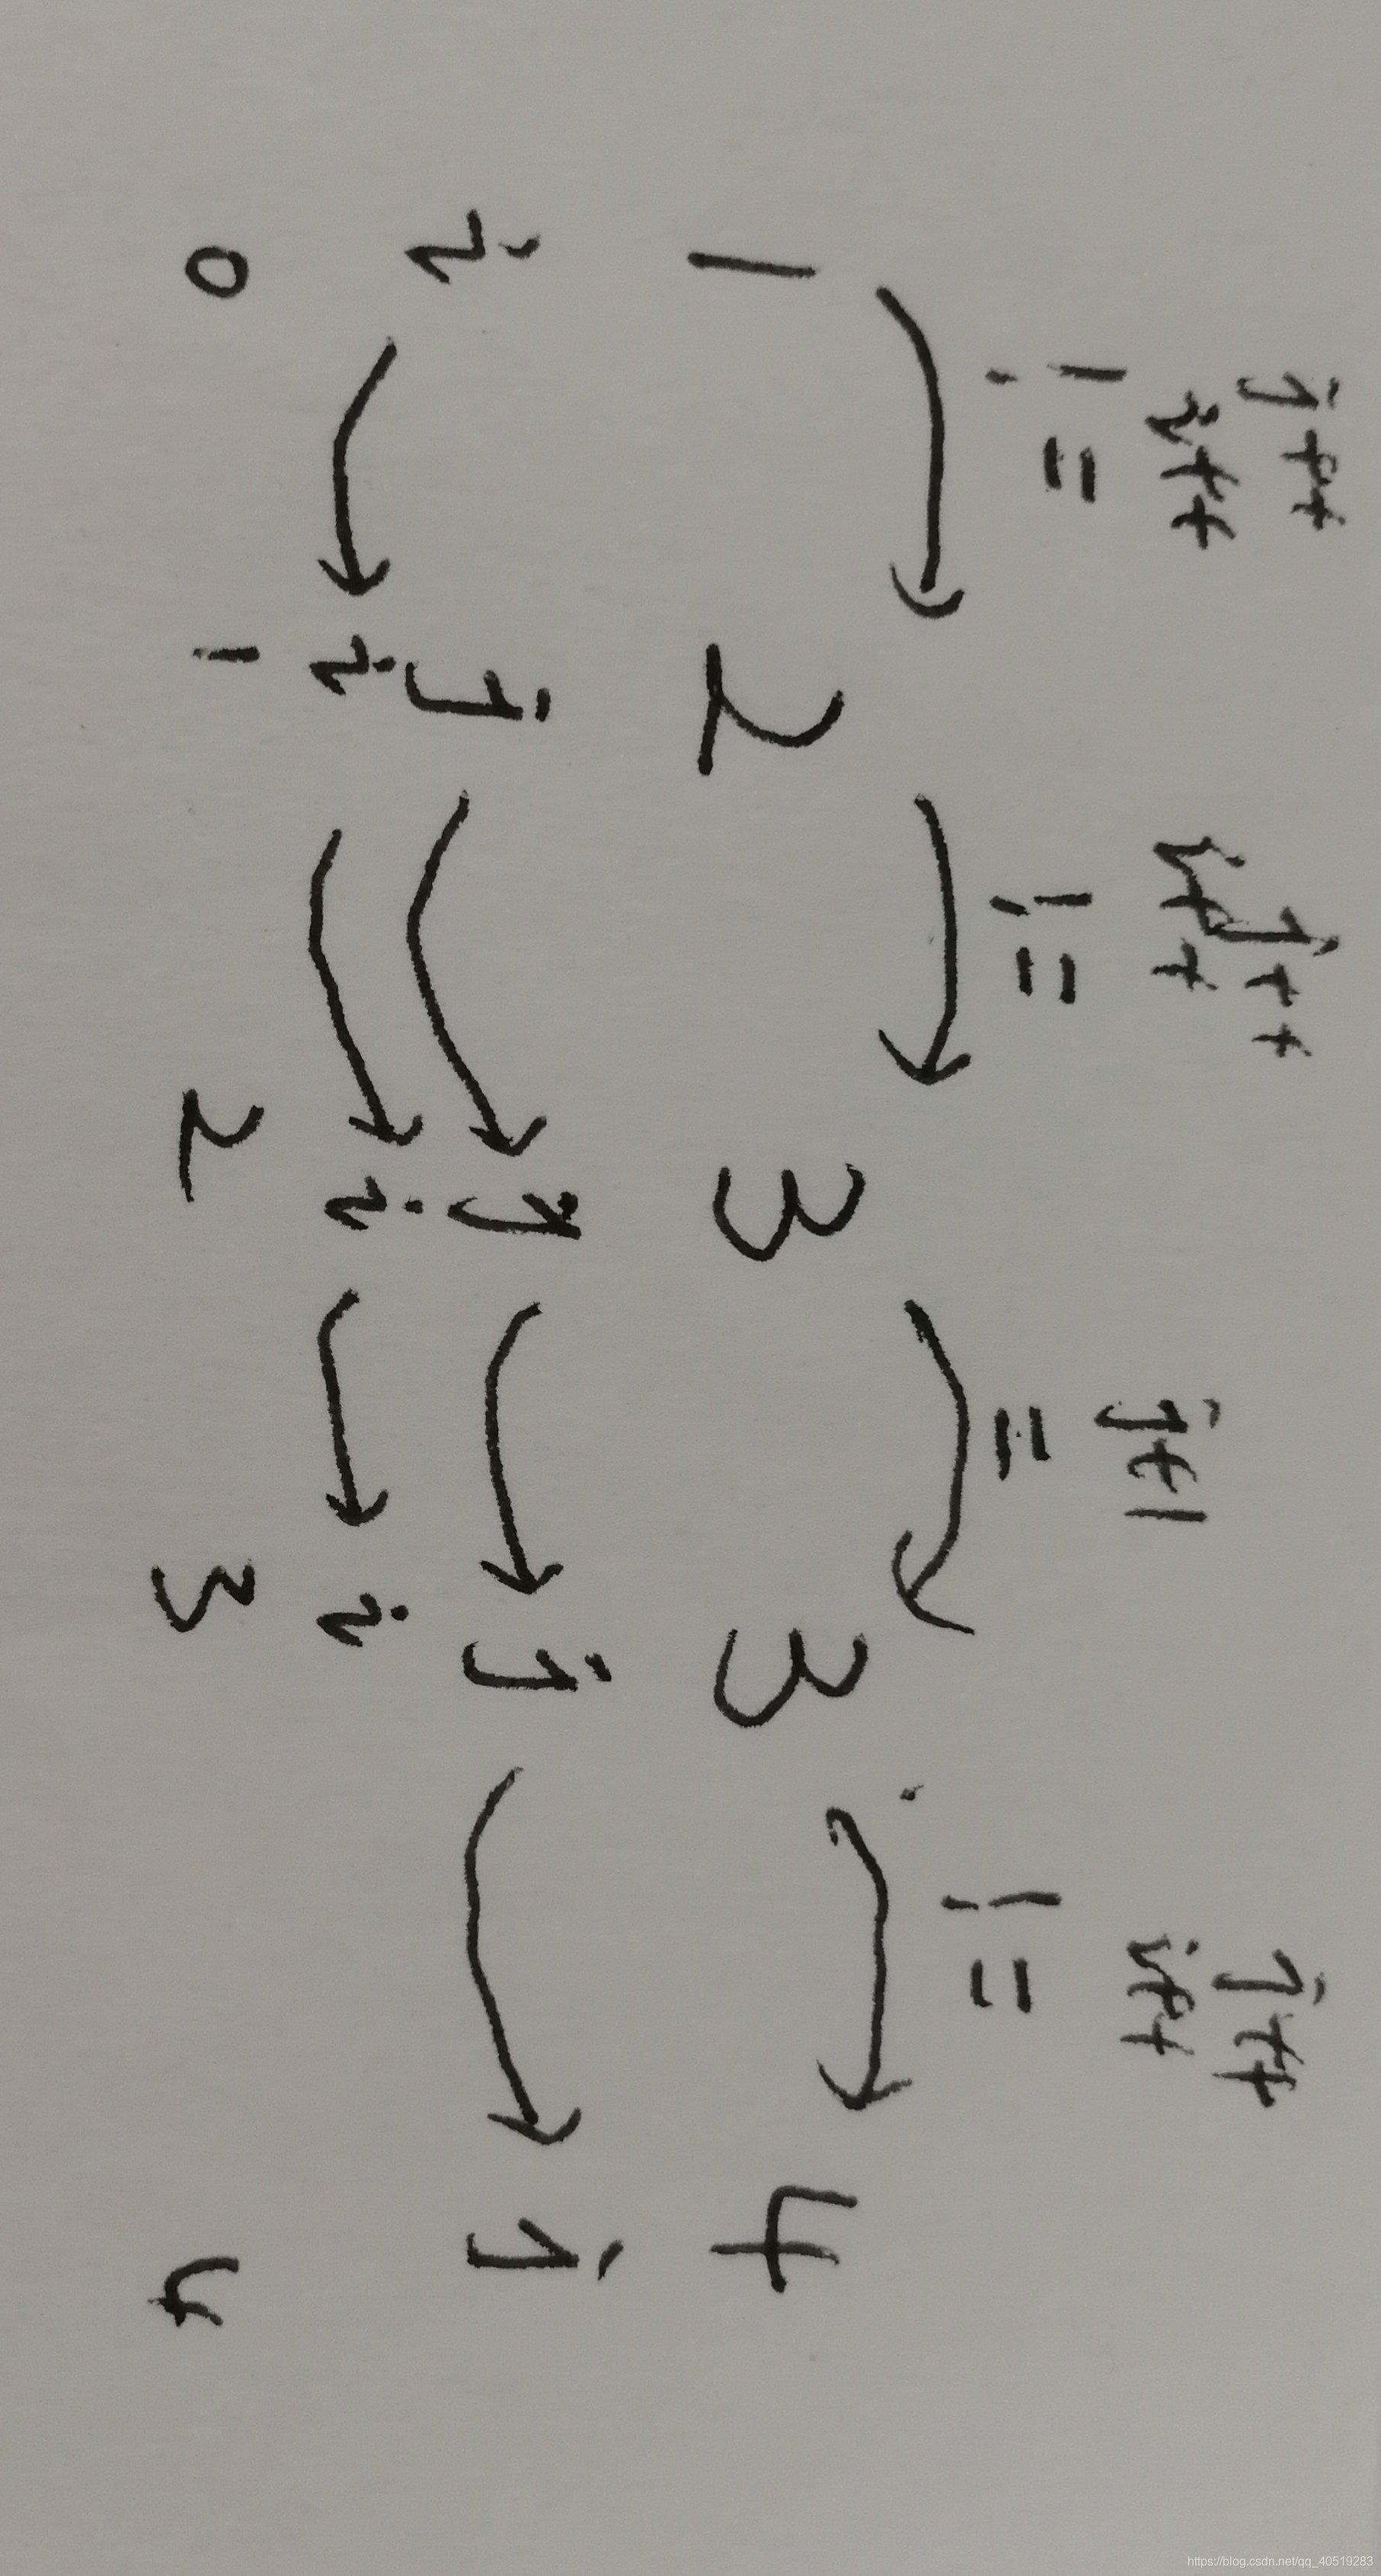 j++ j++ j++
i++ i++ j+1 i++
!= != == !=
1 2 3 3 4
i j j j j
i i i
0 1 2 3 4
https://blog.csdn.net/qq_40519283